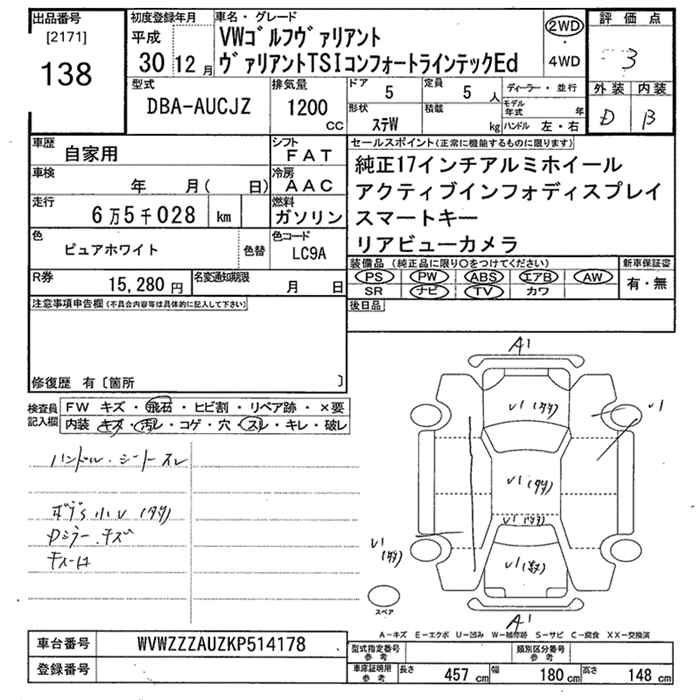 出品番号
[2171]
138
初度登録年月
平成
30 12月
車名・グレード
VWゴルフヴァリアント
ヴァリアントTSIコンフォートラインテックEd
2WD
・
4WD
評価点
3
外装 内装
D B
型式
DBA-AUCJZ
排気量
1200
CC
ドア 5
定員 5 人
形状 ステW
積載 kg
ディーラー・並行
モデル年式 年
ハンドル 左・右
車歴 自家用
シフト FAT
車検 年 月( 日)
冷房 AAC
走行 6万5千028 km
燃料 ガソリン
色 ピュアホワイト 色替
色コード LC9A
R券 15,280円
名変通知期限 月 日
セールスポイント(正常に機能するものに限ります)
純正17インチアルミホイール
アクティブインフォディスプレイ
スマートキー
リアビューカメラ
装備品(純正品に限り○をつけてください)
新車保証書
PS PW ABS エアB AW
SR ナビ TV カワ
有・無
後日品
注意事項申告欄(不具合内容等は具体的に記入して下さい)
修復歴 有〔箇所 〕
検査員記入欄
FW キズ・飛石・ヒビ割・リペア跡・×要
内装・キズ・汚レ・コゲ・穴・スレ・キレ・破レ
ハンドル・シートスレ
ボデS小U(タタ)
Dミラー・キズ
A1
U1(タタ)
U1
U1(タタ)
U1(タタ)
U1(タタ)
U1(タタ)
A1
スペア
A-キズ E-エクボ U-凹み W-補修跡 S-サビ C-腐食 XX-交換済
車台番号 WVWZZZAUZKP514178
登録番号
型式指定番号 参考
類別区分番号 参考
車庫証明用 参考
長さ 457 cm 幅 180 cm 高さ 148 cm